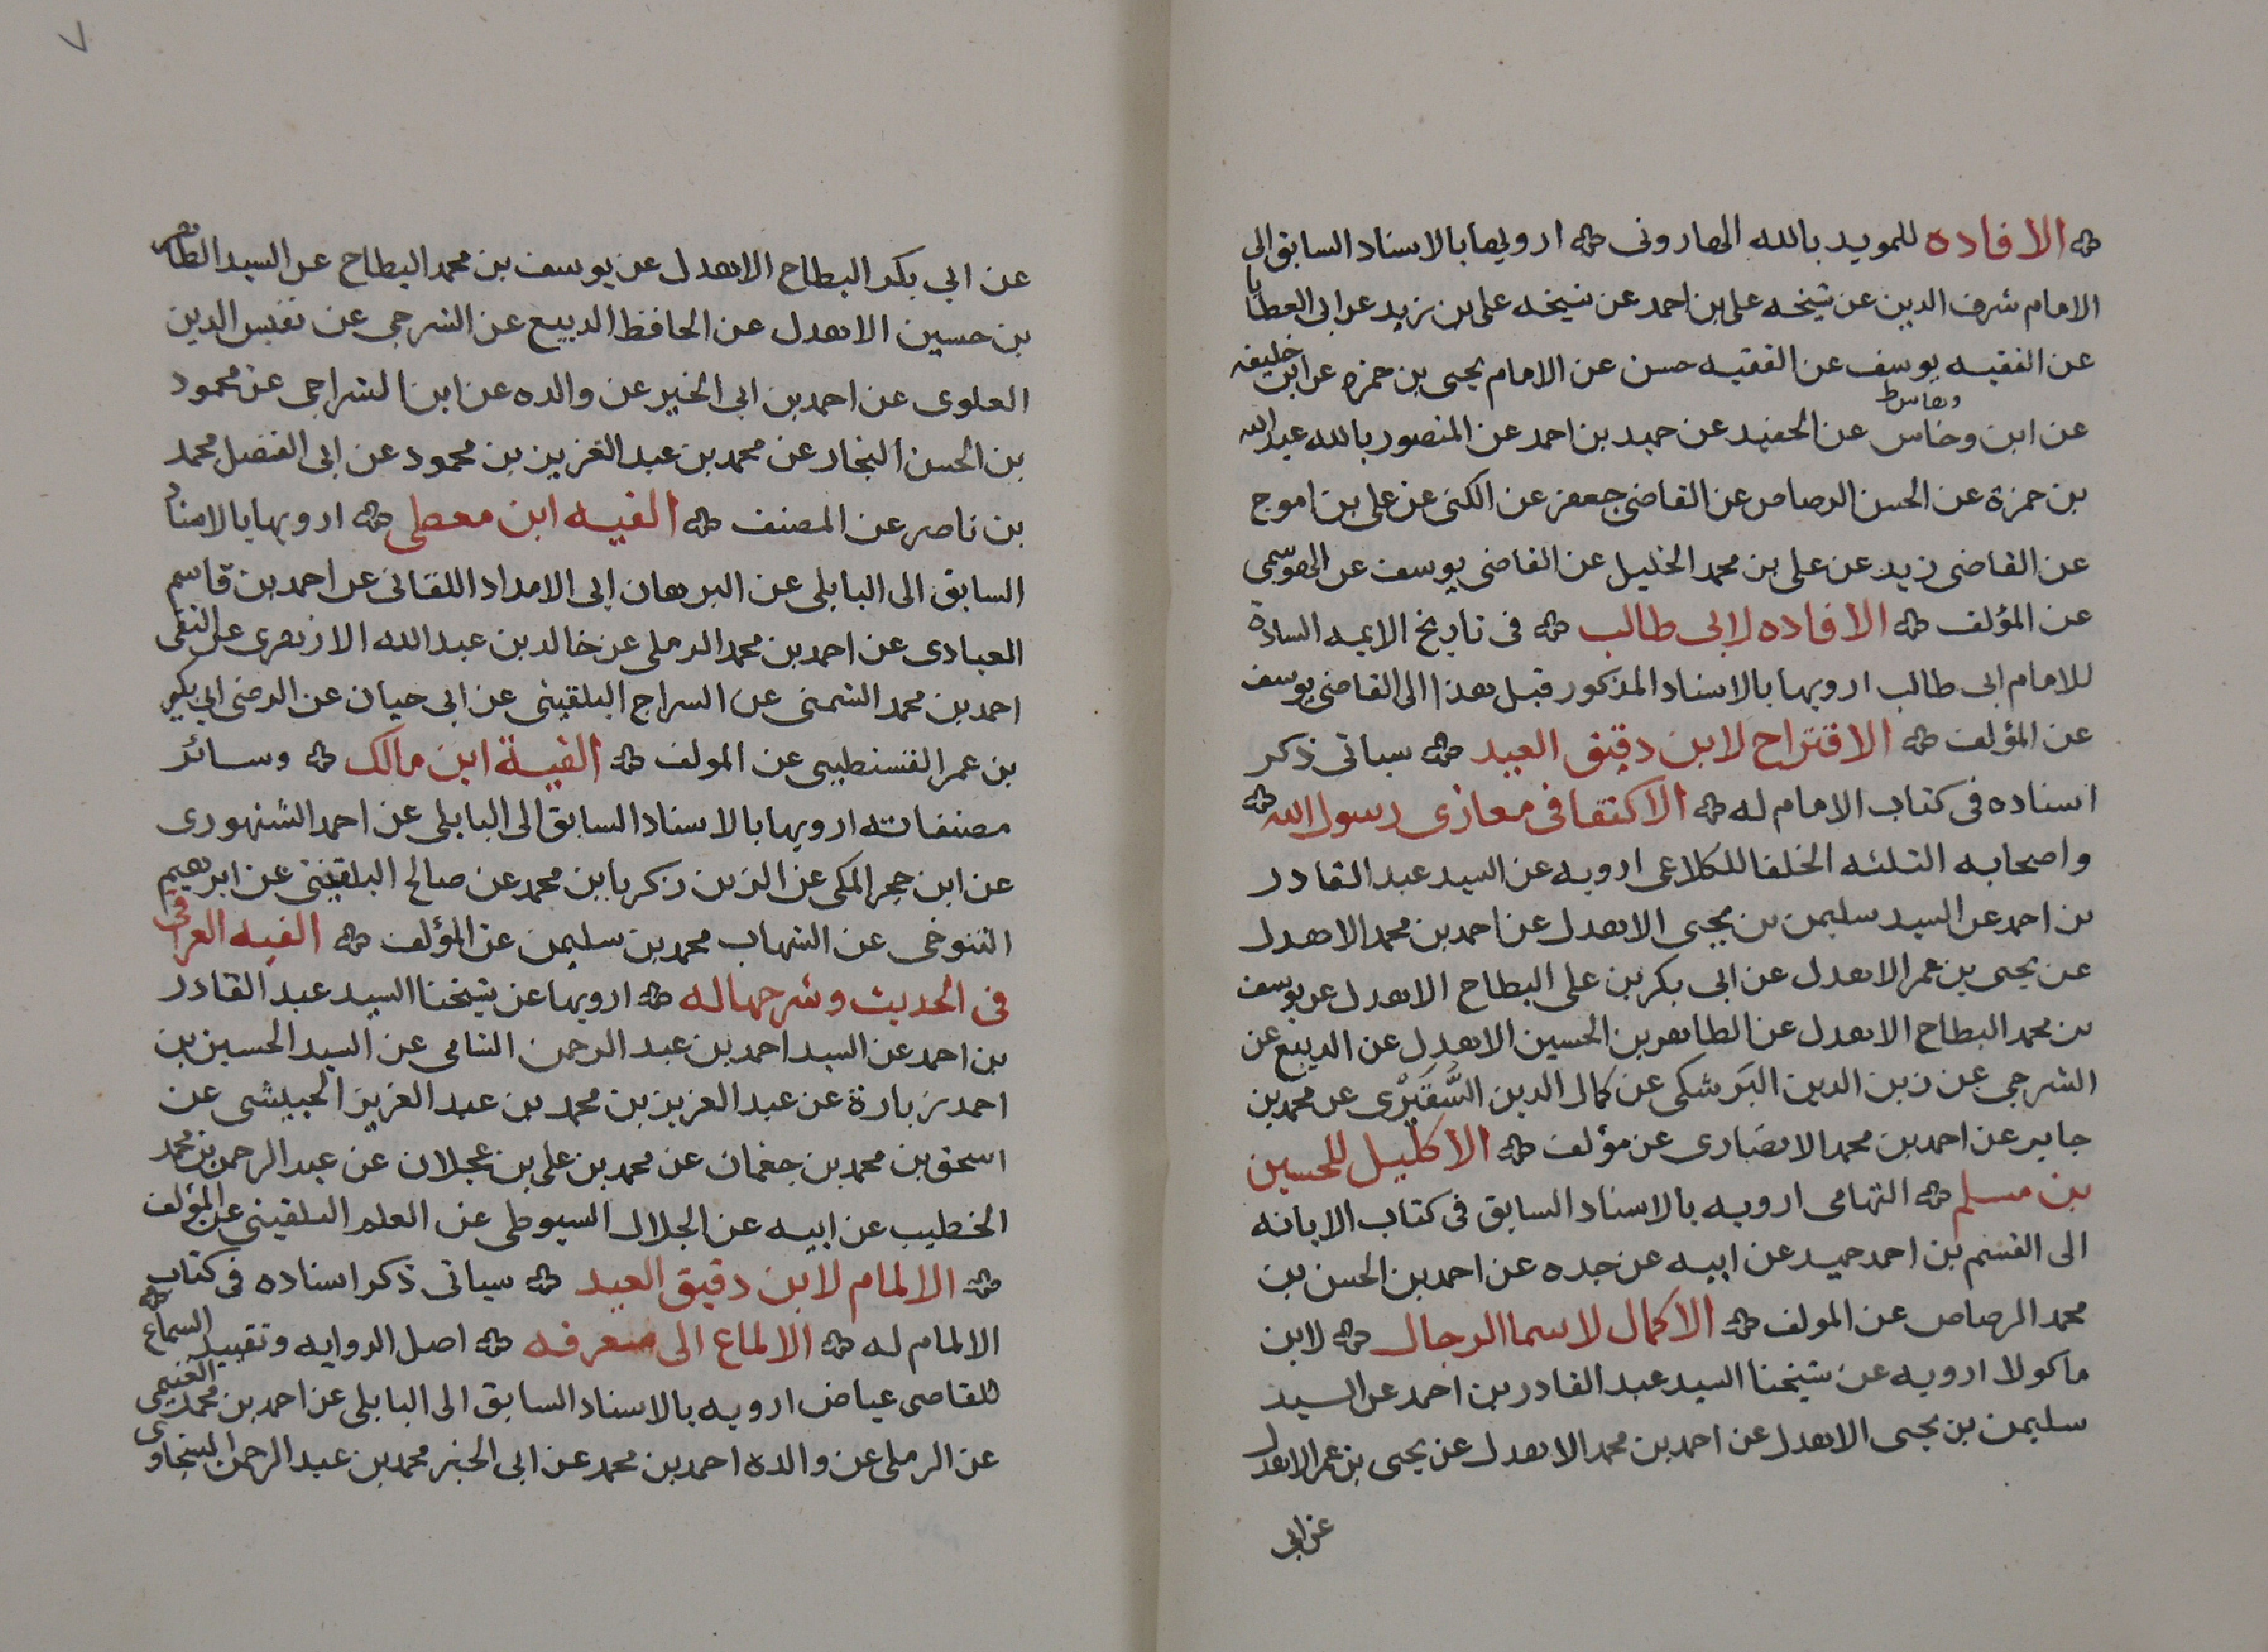 الافاده للمويد بالله الهارونى ارويها بالاسناد السابق الى
الامام شرف الدين عن شيخه على بن احمد عن شيخه على بن زيد عن ابى العطايا
عن الفقيه يوسف عن الفقيه حسن عن الامام يحيى بن حمزه عن ابن خليفه
وهاس ط
عن ابن وخاس عن الحفيد عن حميد بن احمد عن المنصور بالله عبد الله
بن حمزة عن الحسن الرصاص عن القاضى جعفر عن الكنى عن على بن اموج
عن القاضى زيد عن على بن محمد الخليل عن القاضى يوسف عن الهوسمى
عن المؤلف الافاده لابى طالب فى تاريخ الايمه السادة
للامام ابى طالب ارويها بالاسناد المذكور قبل هذا الى القاضى يوسف
عن المؤلف الاقتراح لابن دقيق العيد سياتى ذكر
اسناده فى كتاب الامام له الاكتفا فى مغازى رسول الله
واصحابه الثلثه الخلفا للكلاعى ارويه عن السيد عبد القادر
بن احمد عن السيد سليمن بن يحيى الاهدل عن احمد بن محمد الاهدل
عن يحيى بن عمر الاهدل عن ابى بكر بن على البطاح الاهدل عن يوسف
بن محمد البطاح الاهدل عن الطاهر بن الحسين الاهدل عن الديبع عن
الشرجى عن زين الدين البرشكى عن كمال الدين عن محمد بن
جابر عن احمد بن محمد الانصارى عن مؤلف الاكليل للحسين
بن مسلم التهامى ارويه بالاسناد السابق فى كتاب الابانه
الى القسم بن احمد حميد عن ابيه عن جده عن احمد بن الحسن بن
محمد الرصاص عن المولف الاكمال لاسما الرجال لابن
ماكولا ارويه عن شيخنا السيد عبد القادر بن احمد عن السيد
سليمن بن يحيى الاهدل عن احمد بن محمد الاهدل عن يحيى بن عمر الاهدل
عن ابى
٧
عن ابى بكر البطاح الاهدل عن يوسف بن محمد البطاح عن السيد الطاهر
بن حسين الاهدل عن الحافظ الديبع عن الشرجى عن نفيس الدين
العلوى عن احمد بن ابى الخير عن والده عن ابن الشراجى عن محمود
بن الحسن النجار عن محمد بن عبد العزيز بن محمود عن ابى الفضل محمد
بن ناصر عن المصنف الفيه ابن معطى ارويها بالاسناد
السابق الى البابلى عن البرهان ابى الامداد اللقانى عن احمد بن قاسم
العبادى عن احمد بن محمد الرملى عن خالد بن عبد الله الازهرى عن التقى
احمد بن محمد الشمنى عن السراج البلقينى عن ابى حيان عن الرضى ابى بكر
بن عمر القسنطيى عن المولف الفية ابن مالك وسائر
مصنفاته ارويها بالاسناد السابق الى البابلى عن احمد الشنهورى
عن ابن حجر المكى عن الزين زكريا بن محمد عن صالح البلقينى عن ابرهيم
التنوخى عن الشهاب محمد بن سليمن عن المؤلف الفيه العراقى
فى الحديث وشرحها له ارويها عن شيخنا السيد عبد القادر
بن احمد عن السيد احمد بن عبد الرحمن الشامى عن السيد الحسين بن
احمد زبارة عن عبد العزيز بن محمد بن عبد العزيز الحبيشى عن
اسحق بن محمد بن جغمان عن محمد بن على بن عجلان عن عبد الرحمن بن محمد
الخطيب عن ابيه عن الجلال السيوطى عن العلم البلقينى عن المؤلف
الالمام لابن دقيق العيد سياتى ذكر اسناده فى كتاب
الالمام له الالماع الى معرفه اصل الروايه وتقييد السماع
للقاضى عياض ارويه بالاسناد السابق الى البابلى عن احمد بن محمد الغنيمى
عن الرملى عن والده احمد بن محمد عن ابى الخير محمد بن عبد الرحمن السخاوى